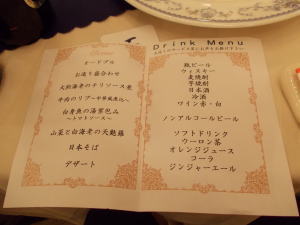 Menu
オードブル
お造り盛合わせ
大正海老のチリソース煮
牛肉のリブ〜中華風煮込〜
白身魚の湯葉包み
〜トマトソース〜
山菜と白海老の天麩羅
日本そば
デザート
Drink Menu
瓶ビール
ウィスキー
麦焼酎
芋焼酎
日本酒
冷酒
ワイン赤・白
ノンアルコールビール
ソフトドリンク
ウーロン茶
オレンジジュース
コーラ
ジンジャーエール